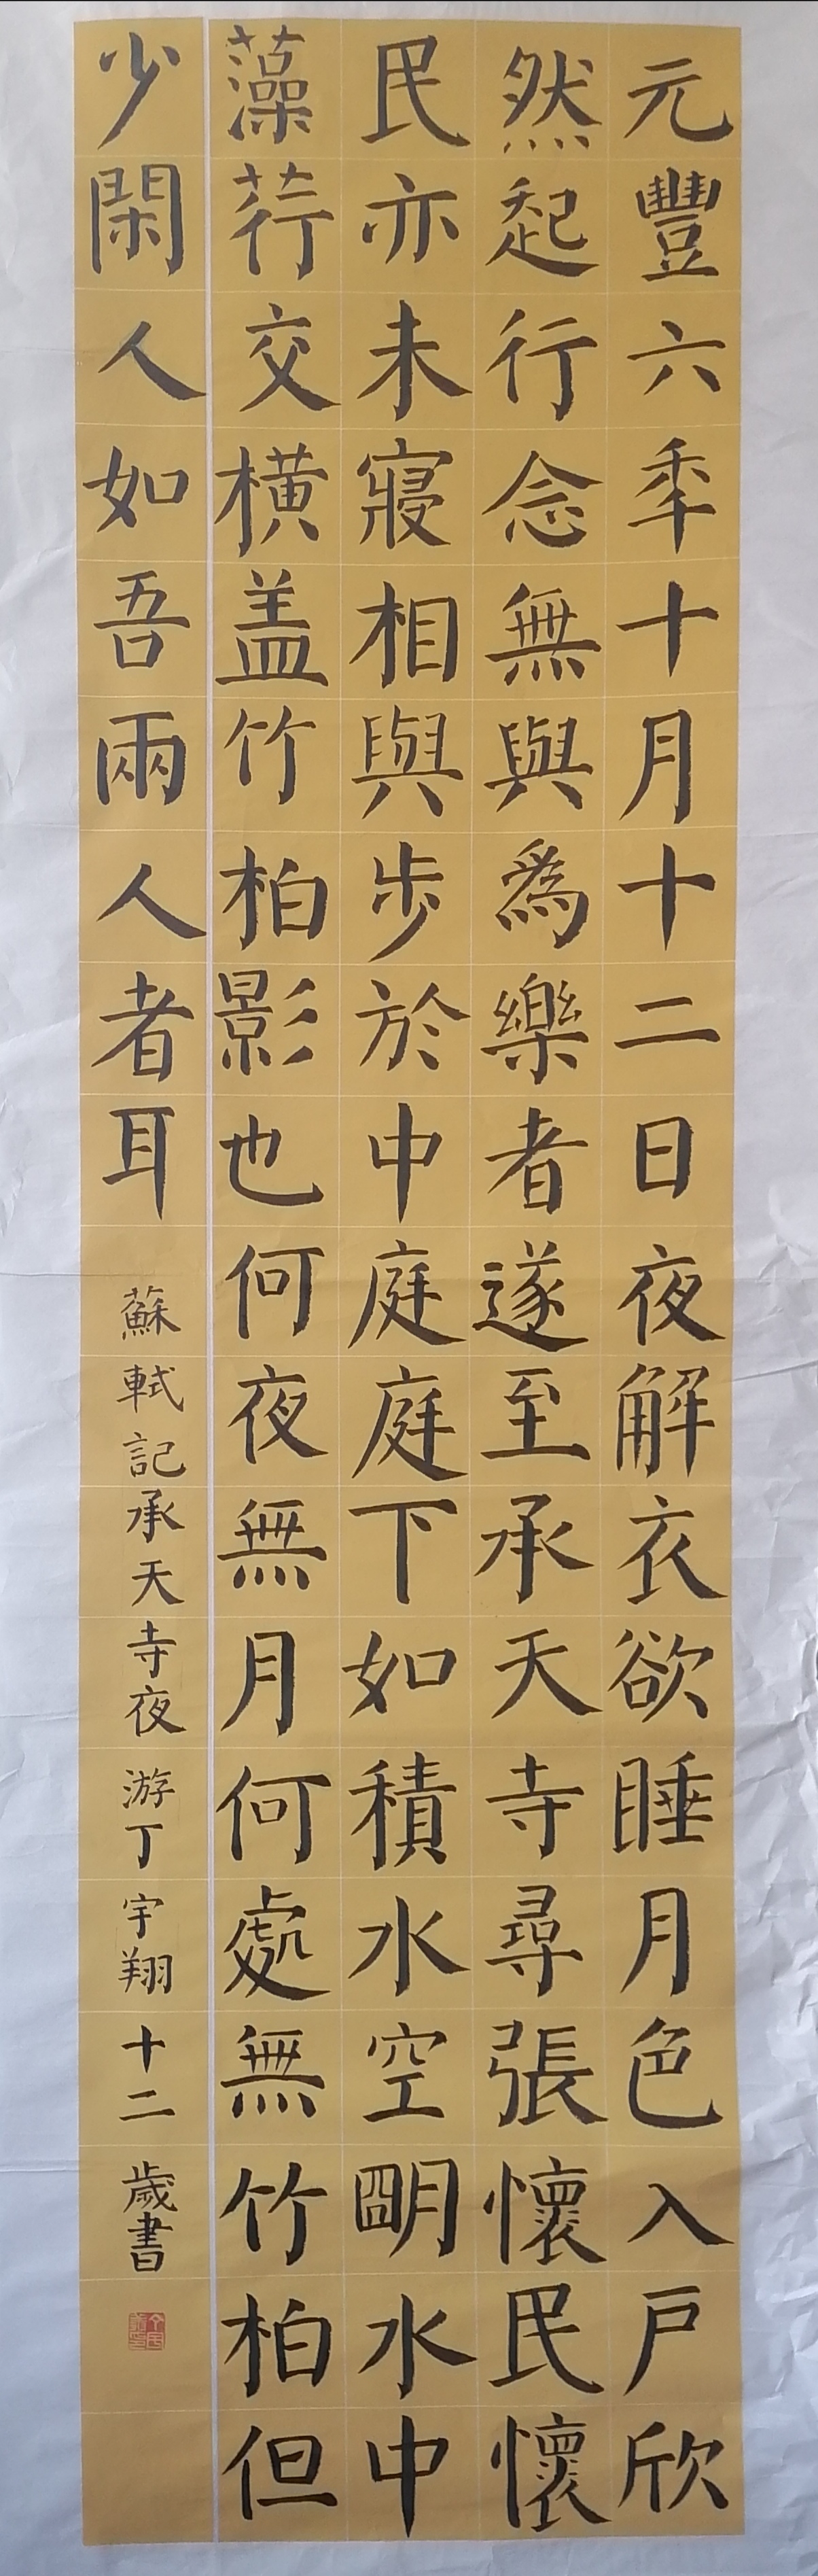 元豐六秊十月十二日夜解衣欲睡月色入戶欣
然起行念無與爲樂者遂至承天寺尋張懷民懷
民亦未寢相與步於中庭庭下如積水空朙水中
藻荇交橫盖竹柏影也何夜無月何處無竹柏但
少閑人如吾兩人者耳
蘇軾記承天寺夜游丁宇翔十二歲書